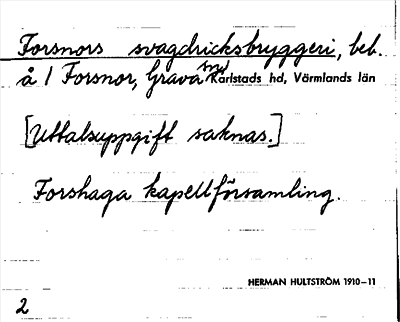 Forsnors svagdricksbryggeri, beb.
å 1 Forsnor, Grava sn, Karlstads hd, Värmlands län
[Uttalsuppgift saknas.]
Forshaga kapellförsamling.
HERMAN HULTSTRÖM 1910–11
2